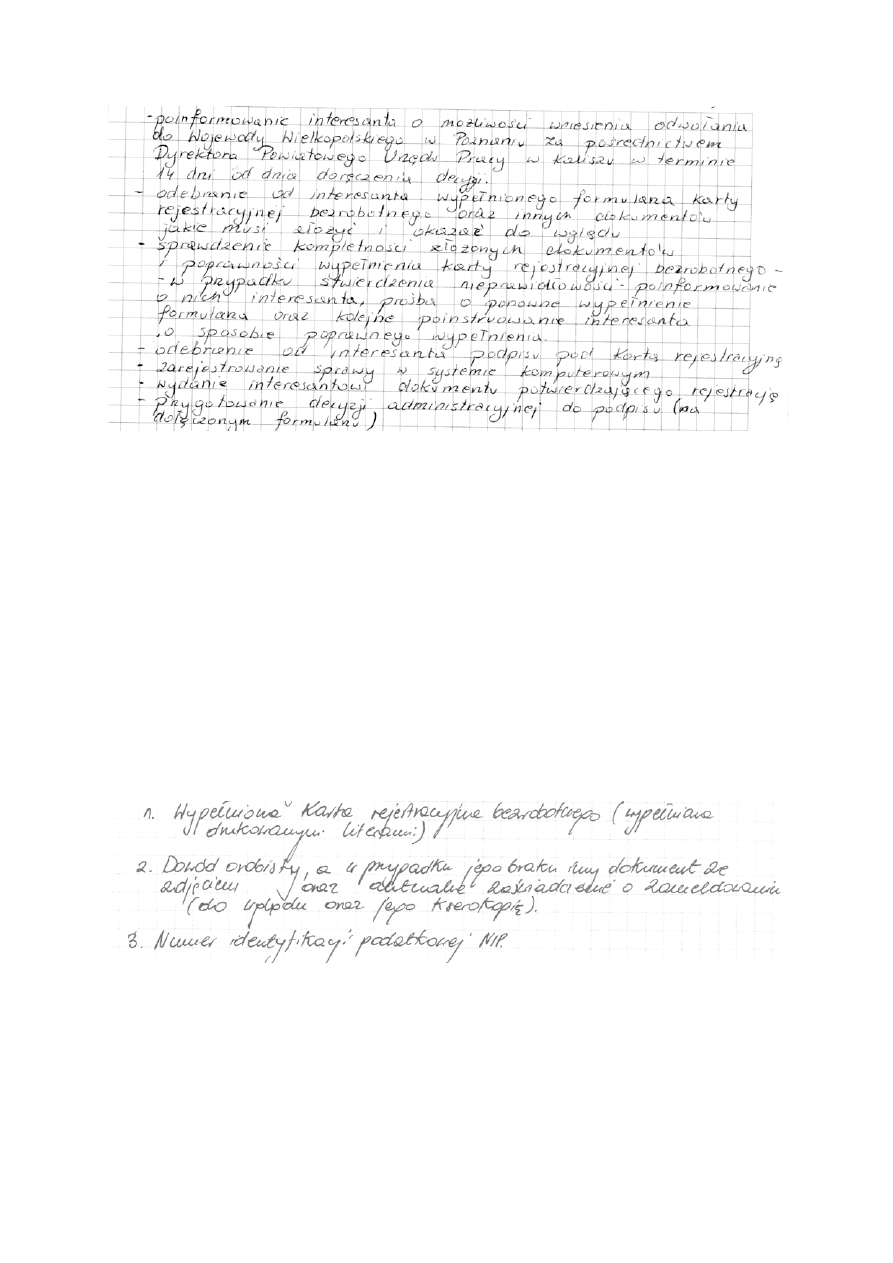 - poinformowanie interesanta o możliwości wniesienia odwołania
do Wojewody Wielkopolskiego w Poznaniu za pośrednictwem
Dyrektora Powiatowego Urzędu Pracy w Kaliszu w terminie
14 dni od dnia doręczenia decyzji.
- odebranie od interesanta wypełnionego formularza karty
rejestracyjnej bezrobotnego oraz innych dokumentów
jakie musi złożyć i okazać do wglądu
- sprawdzenie kompletności złożonych dokumentów
i poprawności wypełnienia karty rejestracyjnej bezrobotnego -
- w przypadku stwierdzenia nieprawidłowości - poinformowanie
o nich interesanta, prośba o ponowne wypełnienie
formularza oraz kolejne poinstruowanie interesanta
o sposobie poprawnego wypełnienia.
- odebranie od interesanta podpisu pod kartą rejestracyjną
- zarejestrowanie sprawy w systemie komputerowym
- wydanie interesantowi dokumentu potwierdzającego rejestrację
- przygotowanie decyzji administracyjnej do podpisu (na
dołączonym formularzu)
1. Wypełniona Karta rejestracyjna bezrobotnego (wypełniana
drukowanymi literami)
2. Dowód osobisty, a w przypadku jego braku inny dokument ze
zdjęciem oraz aktualne zaświadczenie o zameldowaniu
(do wglądu oraz jego kserokopię).
3. Numer identyfikacji podatkowej NIP.